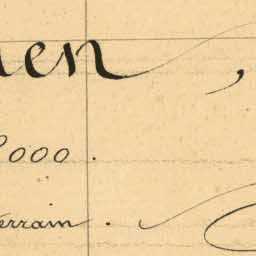 en ,
000 .
errain .